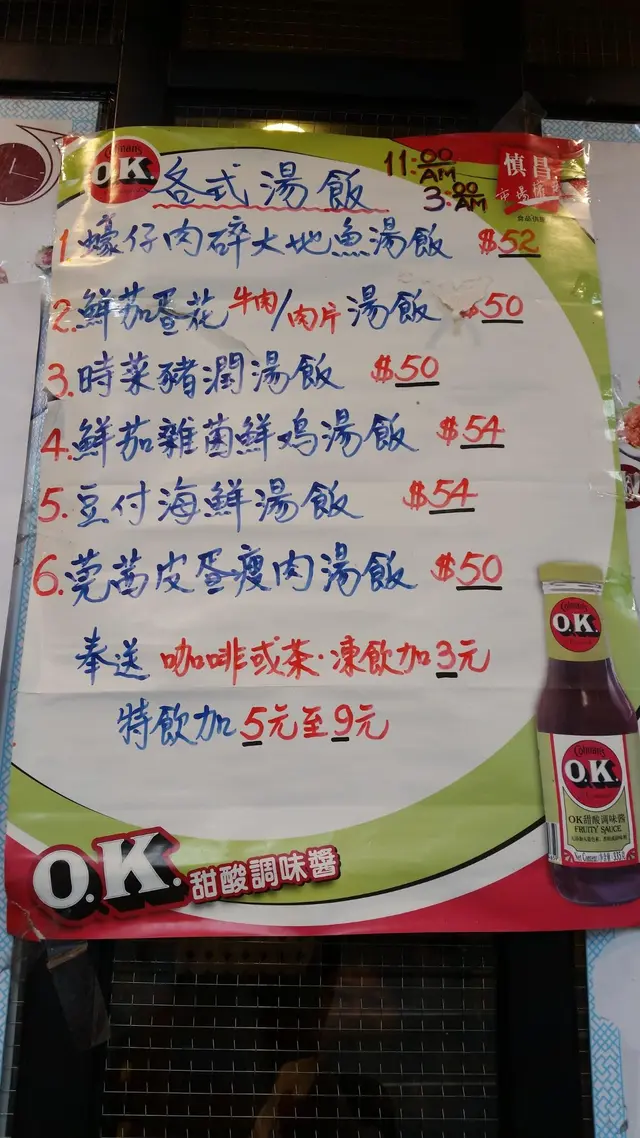 Colman's
O.K.
各式湯飯
11:00 AM
3:00 AM
慎昌
市場推廣
食品供應
1 蠔仔肉碎大地魚湯飯 $52
2. 鮮茄蛋花牛肉/肉片湯飯 $50
3. 時菜豬潤湯飯 $50
4. 鮮茄雜菌鮮鸡湯飯 $54
5. 豆付海鮮湯飯 $54
6. 莞茜皮蛋瘦肉湯飯 $50
奉送 咖啡或茶·凍飲加3元
特飲加5元至9元
Colman's
O.K.
Colman's
O.K.
OK甜酸調味醬
FRUITY SAUCE
O.K. 甜酸調味醬